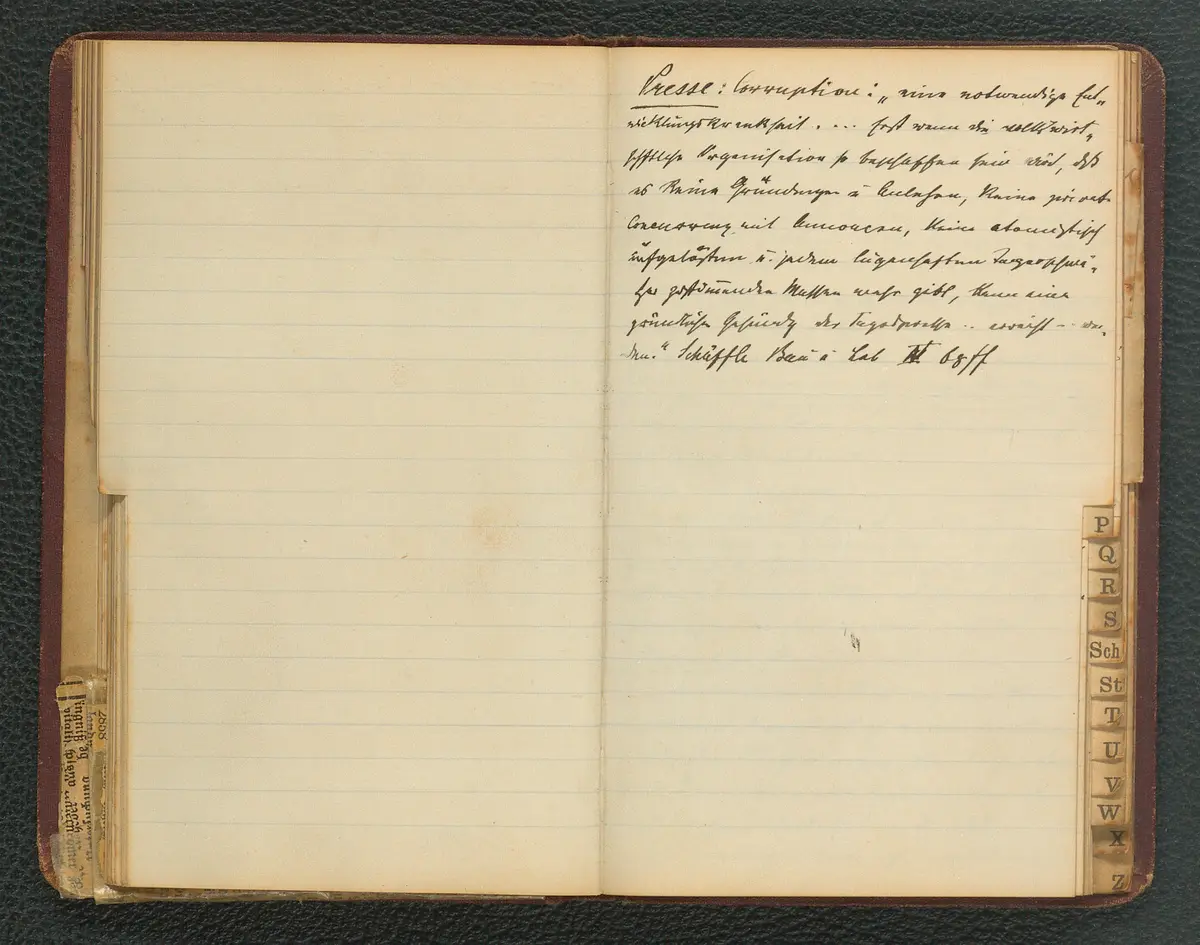 Presse: Corruption: „eine notwendige Ent„
wicklungskrankheit. ... Erst wenn die volkswirt„
schftliche Organisation so beschaffen sein wird, dß
es keine Gründungen u Anlehen, keine privat
Concurrenz mit Annoncen, keine atomistisch
aufgelösten u. jedem lügenhaften Tagesschwä„
tzer zustimmenden Massen mehr gibt, kann eine
gründliche Gesundg der Tagespresse .. erreicht – wer„
den.“ Schäffle Bau u Leb IV 68ff
P
Q
R
S
Sch
St
T
U
V
W
X
Z